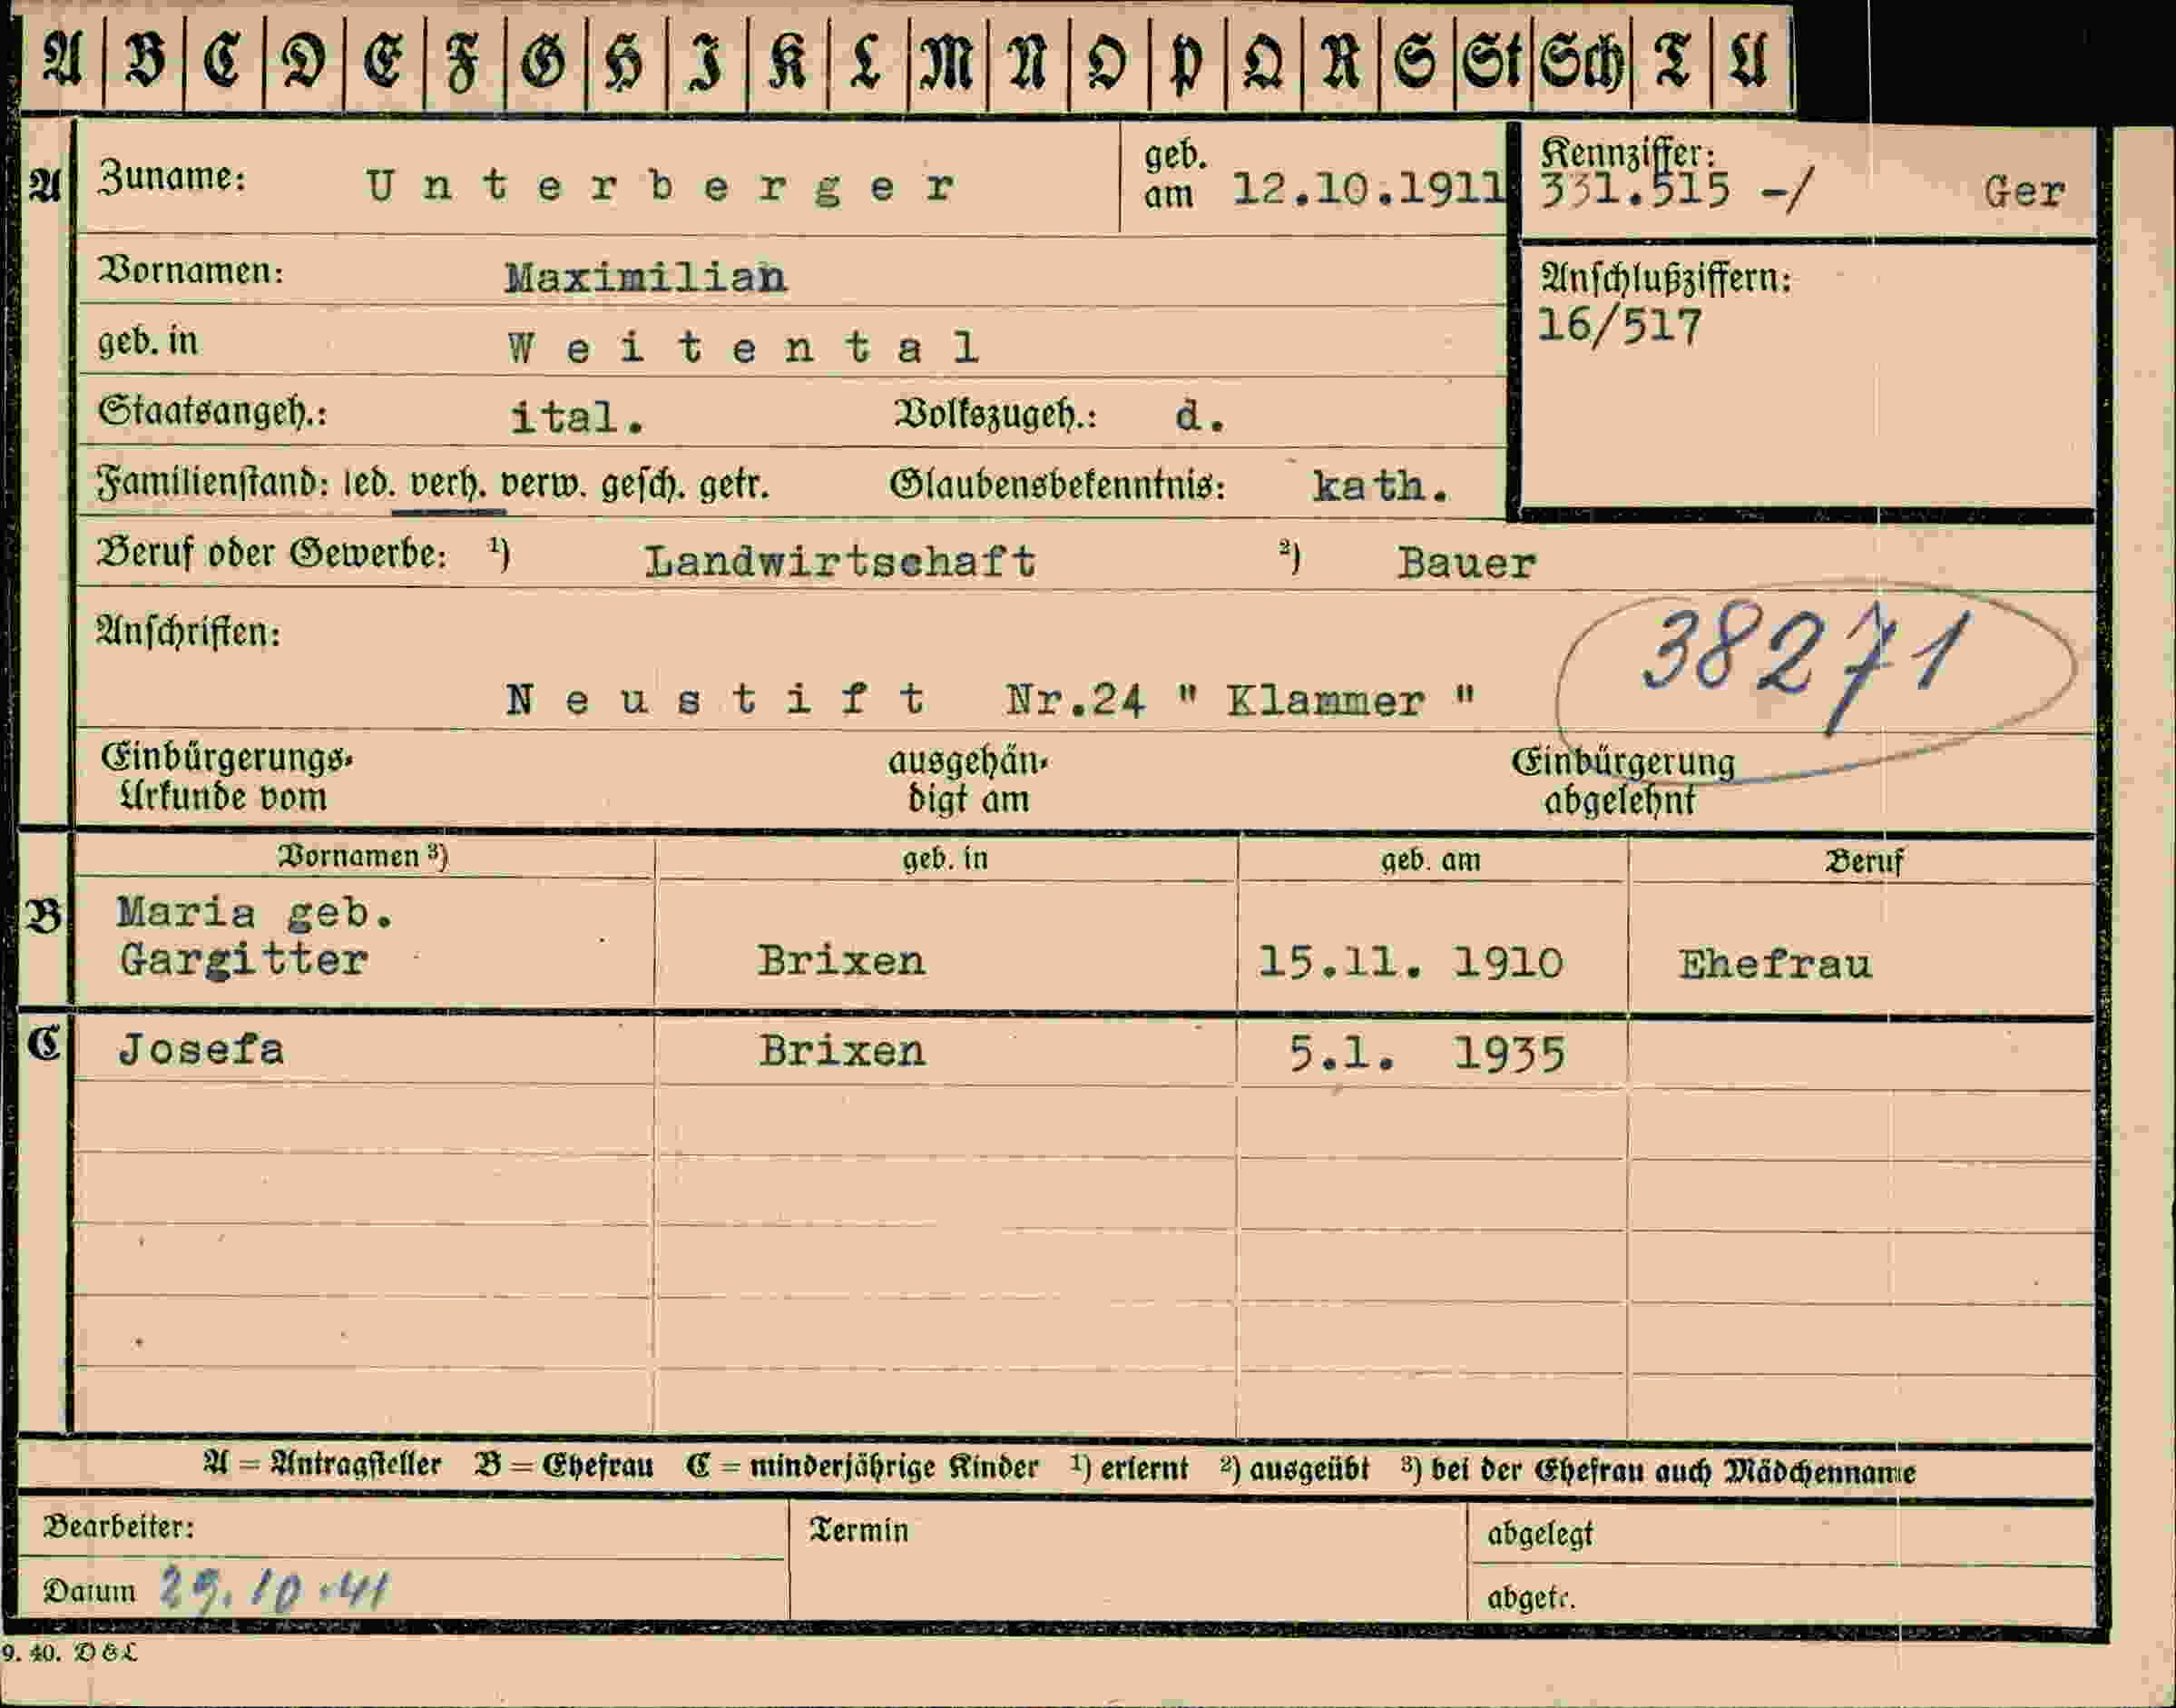 A B C D E F G H I K L M N O P Q R S St Sch T U
A Zuname: Unterberger geb. am 12.10.1911 Kennziffer: 331.515 -/ Ger
Vornamen: Maximilian Anschlußziffern:
geb. in Weitental 16/517
Staatsangeh.: ital. Volkszugeh.: d.
Familienstand: led. verh. verw. gesch. getr. Glaubensbekenntnis: kath.
Beruf oder Gewerbe: 1) Landwirtschaft 2) Bauer
Anschriften: 38271
Neustift Nr.24 " Klammer "
Einbürgerungs- ausgehän- Einbürgerung
Urkunde vom digt am abgelehnt
Vornamen 3) geb. in geb. am Beruf
B Maria geb.
Gargitter Brixen 15.11. 1910 Ehefrau
C Josefa Brixen 5.1. 1935
A = Antragsteller B = Ehefrau C = minderjährige Kinder 1) erlernt 2) ausgeübt 3) bei der Ehefrau auch Mädchenname
Bearbeiter: Termin abgelegt
Datum 29.10.41 abgetr.
9. 40. D & L